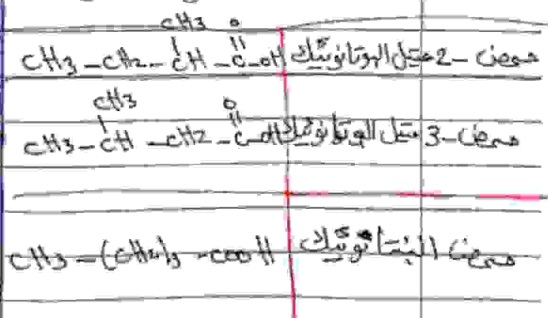 CH3 O
CH3 - CH2 - CH - C - OH حمض - 2 متيل البوتانوئيك
CH3 O
CH3 - CH - CH2 - C - OH حمض - 3 متيل البوتانوئيك
CH3 - (CH2)3 - COOH حمض البنتانوئيك